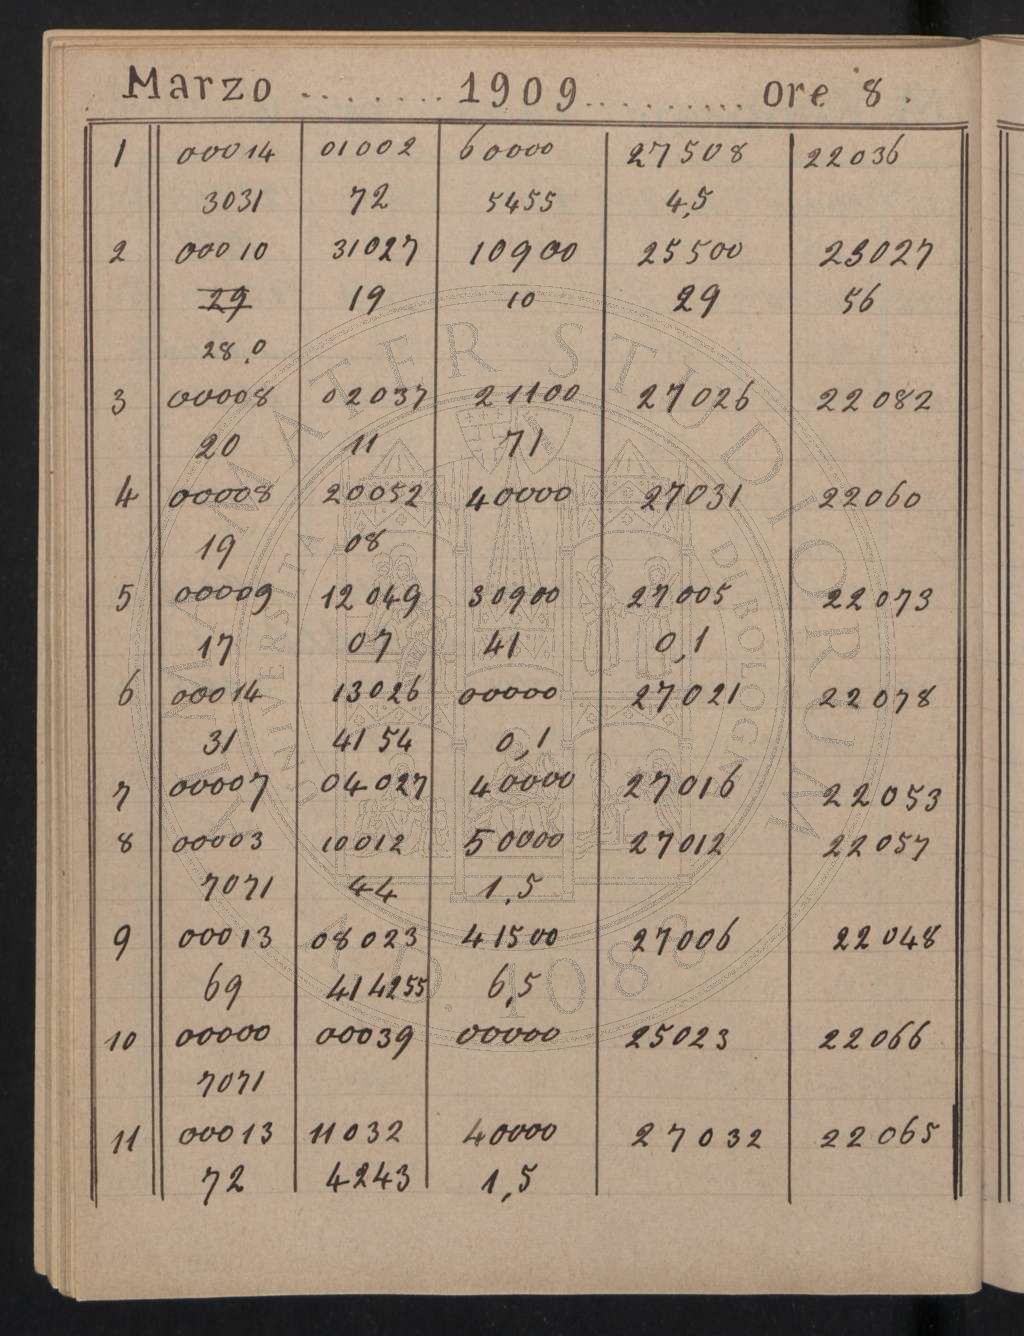 Marzo ........ 1909 .......... ore 8.
1 00014 01002 60000 27508 22036
3031 72 5455 4,5
2 00010 31027 10900 25500 23027
29 19 10 29 56
28,0
3 00008 02037 21100 27026 22082
20 11 71
4 00008 20052 40000 27031 22060
19 08
5 00009 12049 30900 27005 22073
17 07 41 0,1
6 00014 13026 00000 27021 22078
31 4154 0,1
7 00007 04027 40000 27016 22053
8 00003 10012 50000 27012 22057
7071 44 1,5
9 00013 08023 41500 27006 22048
69 414255 6,5
10 00000 00039 00000 25023 22066
7071
11 00013 11032 40000 27032 22065
72 4243 1,5
ALMA MATER STUDIORUM
UNIVERSITA DI BOLOGNA
A.D. 1088